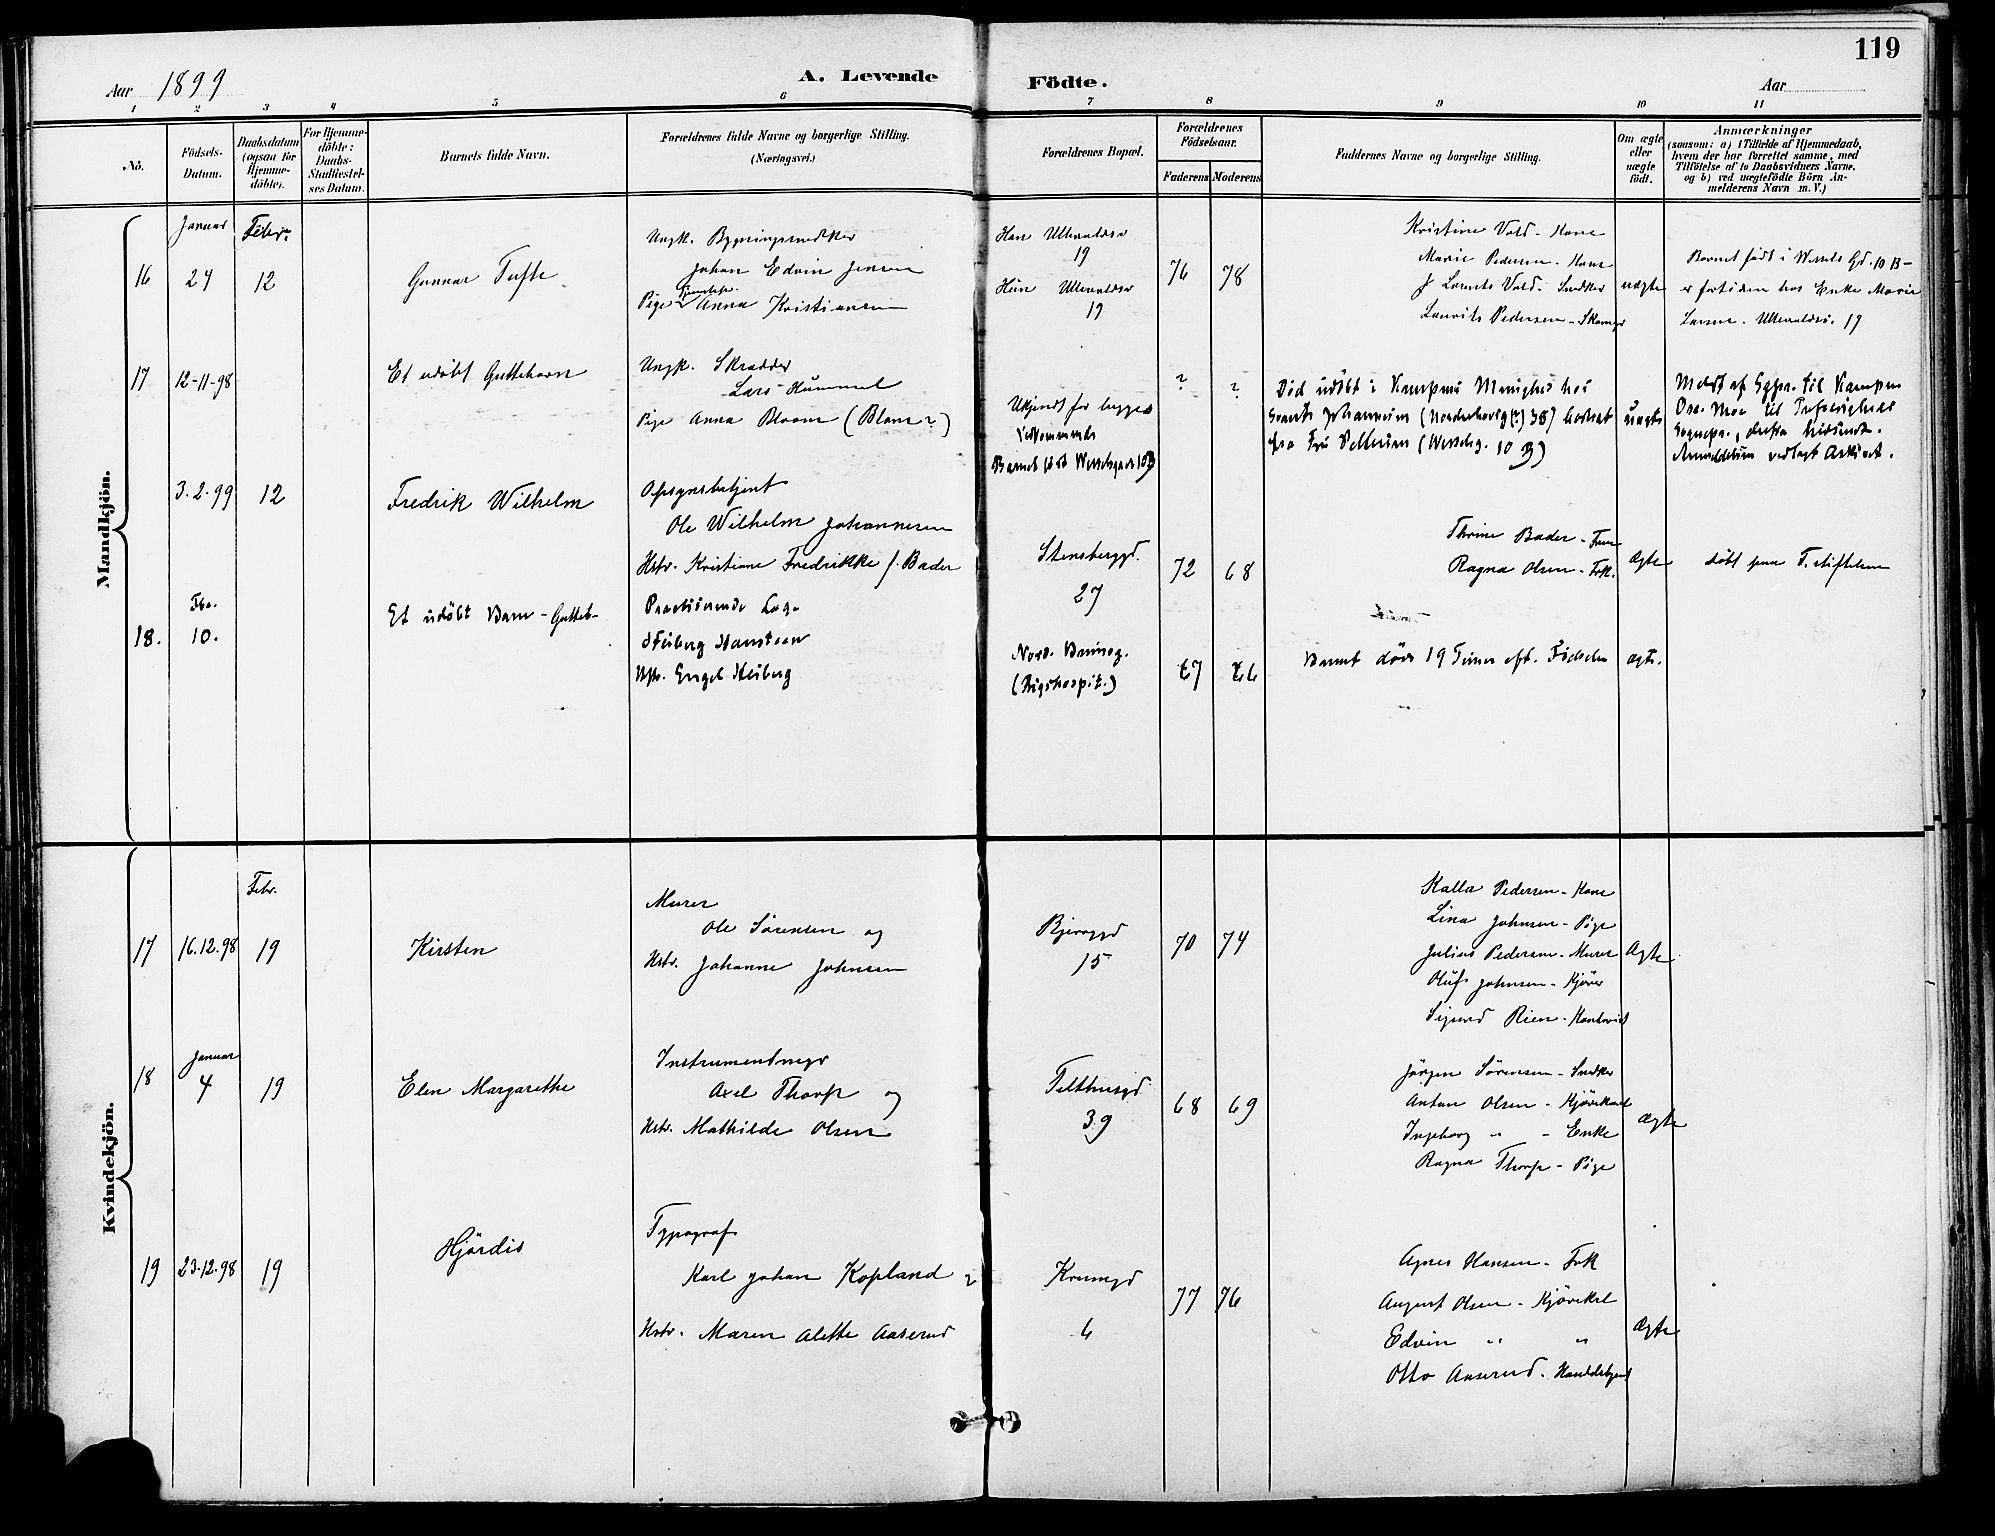 119
Aar 1899
A. Levende Födte.
Aar
1 2 3 4 5 6 7 8 9 10 11
No.
Födsels-Datum.
Daabsdatum (ogsaa for Hjemme-döbte).
For Hjemme-döbte: Daabs-Stadfæstel-ses Datum.
Barnets fulde Navn.
Forældrenes fulde Navne og borgerlige Stilling. (Næringsvei.)
Forældrenes Bopæl.
Forældrenes Födselsaar.
Faderens Moderens
Faddernes Navne og borgerlige Stilling.
Om ægte eller uægte födt.
Anmærkninger
(saasom: a) i Tilfælde af Hjemmedaab,
hvem der har forrettet samme, med
Tilföielse af to Daabsvidners Navne,
og b) ved uægtefödte Börn An-
melderens Navn m. V.)
Mandkjön.
Januar Febr.
16 24 12
Gunnar Tufte
Ungk. Bygningssnedker
Johan Edvin Jensen
Pige Anna Kristiansen
Han Ullevaalsv
19
Hun Ullevaalsv
19
76 78
Kristine Vold - Kone
Marie Pedersen - Kone
Laurits Vold - Snedker
Laurits Pedersen - Skomgr
uægte
Barnet født i Wessels Gd. 10 B -
er fortiden hos Enke Marie
Larsen. Ullevaalsv. 19
17 12-11-98
Et udøbt Guttebarn
Ungk. Skrædder
Lars Hummel
Pige Anna Bloom (Blom?)
Ukjendt for begges
Vedkommende
Barnet født Wesselsgade 10B
? ?
Død udøbt i Kampens Menighed hos
fra Fru Pettersen (Wesselsg. 10 B)
uægte
3.2.99 12
Fredrik Wilhelm
Opsynsbetjent
Ole Wilhelm Johannesen
Hstr. Kristiane Fredrikke f. Bader
Stensberggd.
27
72 68
Thrine Bader - Frue
Ragna Olsen - Frk.
Ægte
døbt paa F. stiftelsen
18. Feb. 10.
Et udøbt Barn - Gutteb-
Practiserende Læge
Feiberg Hansteen
Hstr. Engel Heiberg
Nord. Brunsg.
(Rigshospit.)
67 66
Barnet døde 19 Timer eft. Fødselen
ægte.
Kvindekjön.
Febr.
17 16.12.98 19
Kirsten
Murer
Ole Sørensen og
Hstr. Johanne Johnsen
Bjerreggd
15
70 74
Kalla Pedersen - Kone
Lina Johnsen - Pige
Julius Pedersen - Murer
Oluf Johnsen - Kjører
Sigurd Rien -
Ægte
Januar
18 4 19
Elen Margarethe
Instrumentmgr
Axel Thorp og
Hstr. Mathilde Olsen
Telthusgd
39
68 69
Jørgen Sörensen - Snedker
Anton Olsen - Kjørekarl
Ingeborg " - Enke
Ragna Thorp - Pige
Ægte
19 23.12.98 19
Hjørdis
Typograf
Karl Johan Kopland
Hstr. Maren Alette Aaserud
Krumgd
6
77 76
Agnes Hansen - Frk
August Olsen - Kjørekl
Edvin " "
Otto Aaserud - Handelsbetjent
Ægte